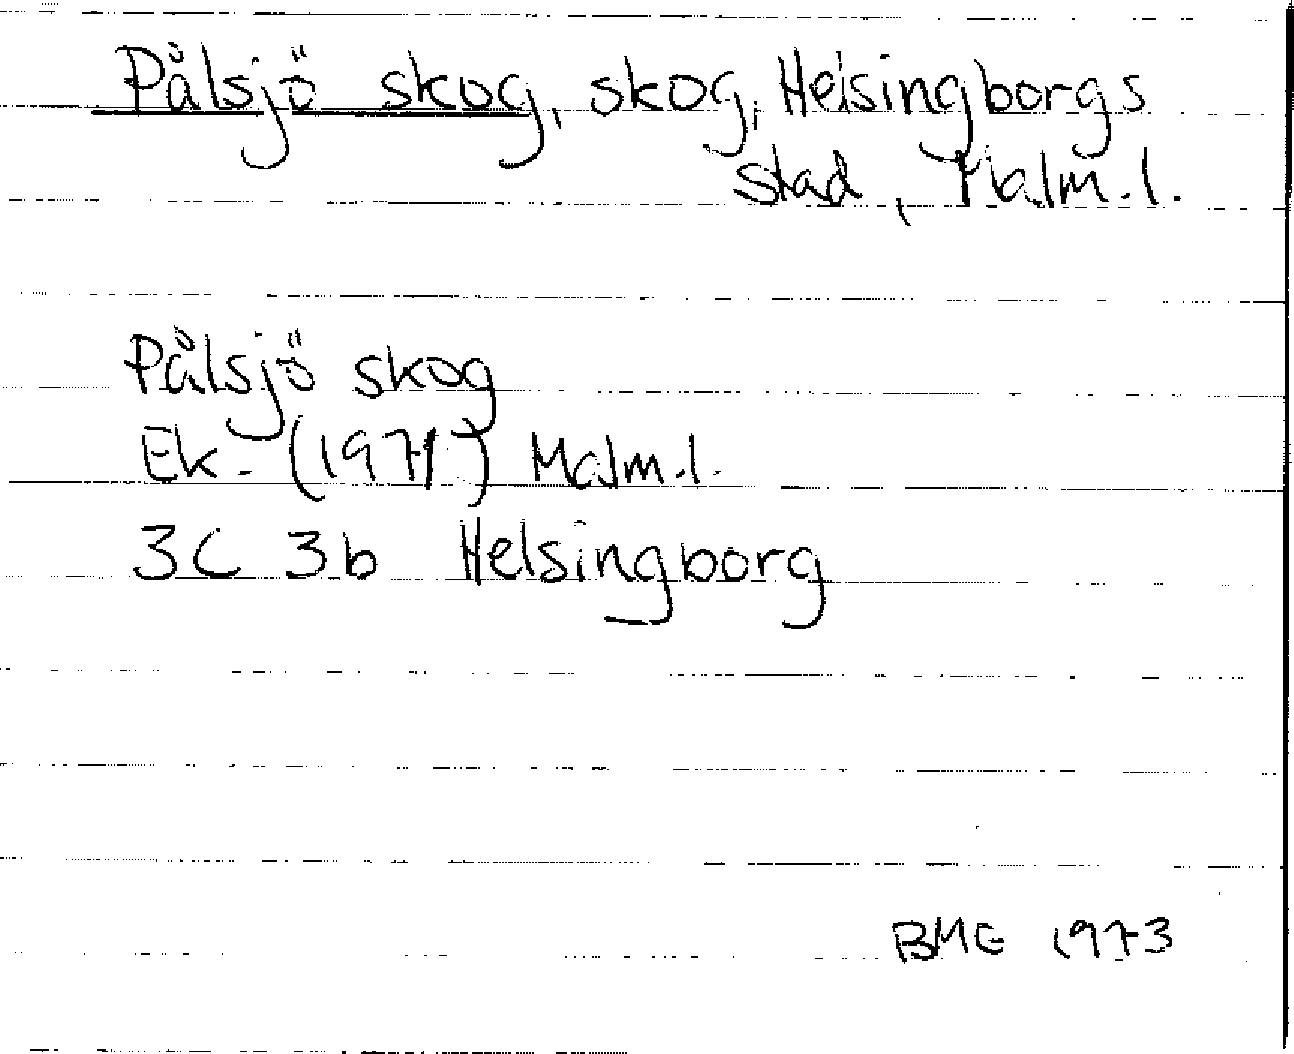 Pålsjö skog, skog, Helsingborgs
stad, Malm.l.
Pålsjö skog
Ek. (1971) Malm.l.
3C 3b Helsingborg
BME 1973